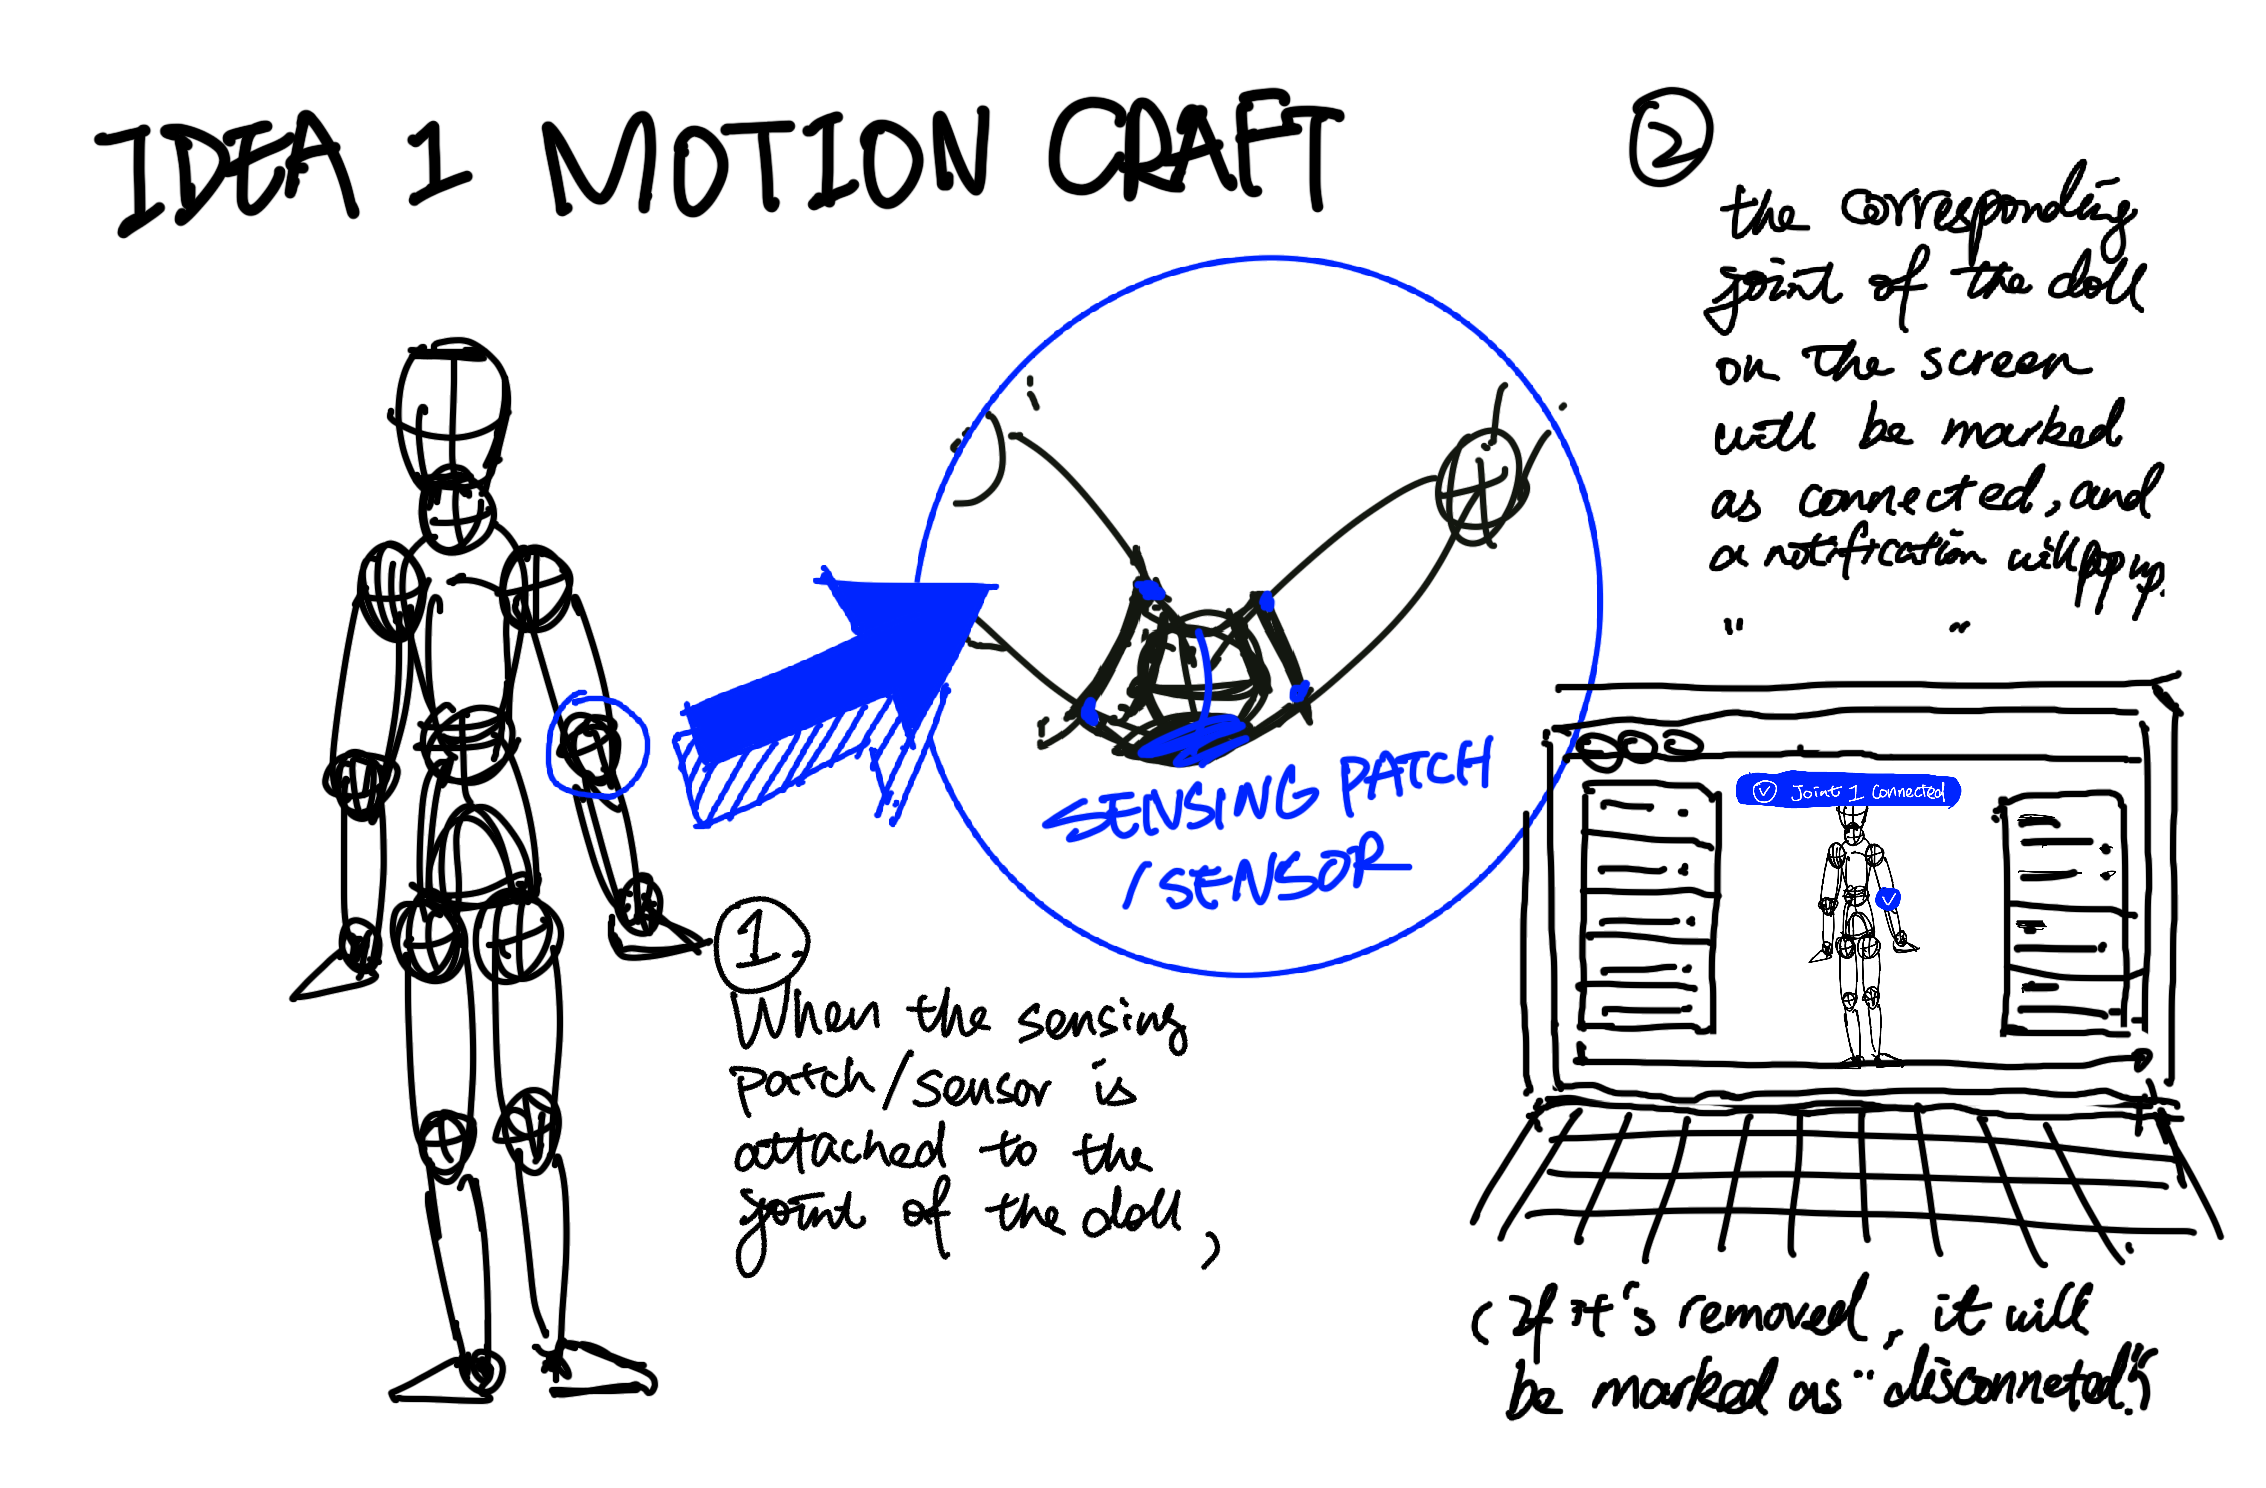 IDEA 1 MOTION CRAFT
SENSING PATCH
/SENSOR
1
When the sensing
patch/sensor is
attached to the
joint of the doll,
2
the corresponding
joint of the doll
on the screen
will be marked
as connected, and
a notification will pop up.
Joint 1 Connected
(If it's removed, it will
be marked as "disconneted")